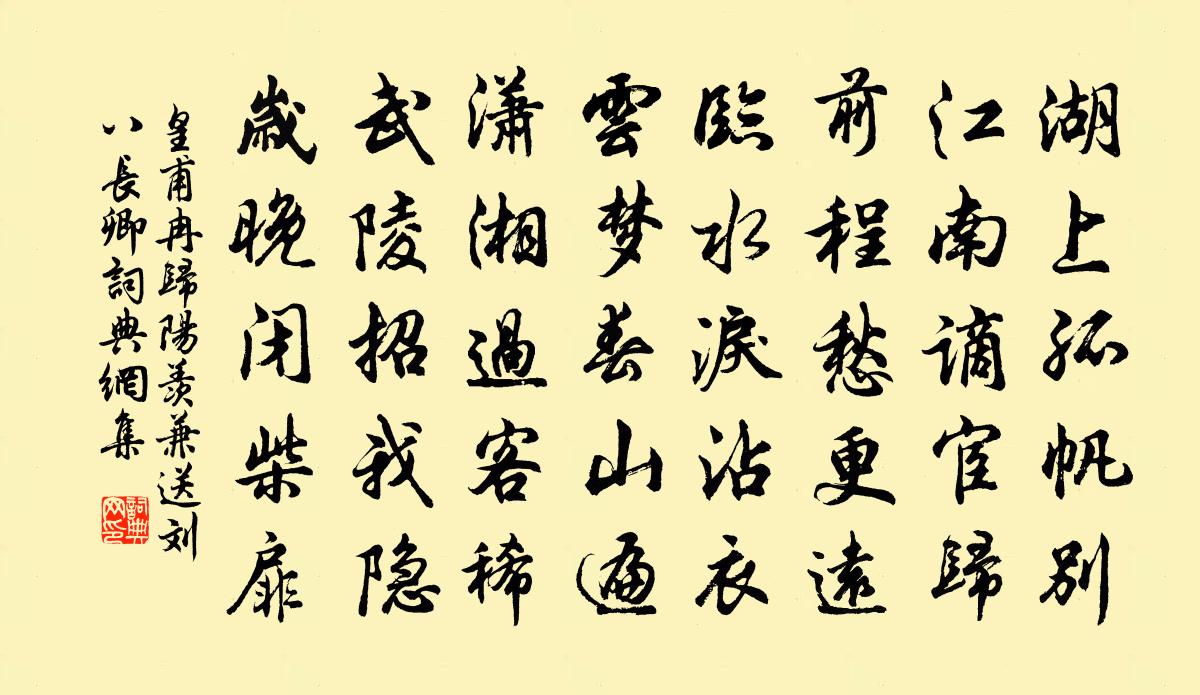 湖上孤帆別
江南謫宦歸
前程愁更遠
臨水淚沾衣
雲梦春山遍
瀟湘過客稀
武陵招我隐
歲晚闭柴扉
皇甫冉歸陽羨兼送刘
八長卿詞典網集
詞典网印